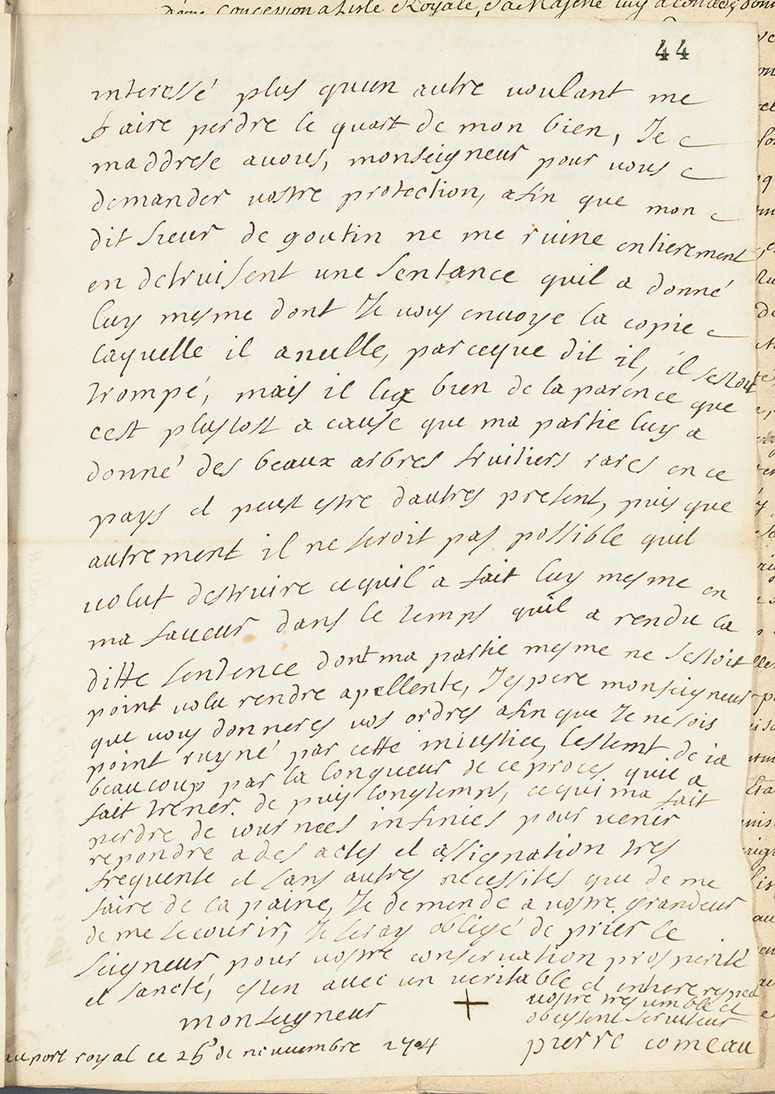 d'une concession a l'isle Royale, Sa Majesté luy a
44
interessé plus quun autre voulant me
faire perdre le quart de mon bien, Je
maddrese avous, monseigneur pour vous
demander vostre protection, afin que mon
dit sieur de goutin ne me ruine entierement
en detruisent une sentance quil a donné
luy mesme dont Je vous envoye la copie
laquelle il anulle, parceque dit il, il sestoit
trompé, mais il bien de laparence que
cest plustost a cause que ma partie luy a
donné des beaux arbres fruitiers rares en ce
pays et peust estre dautres present, puis que
autrement il ne seroit pas possible quil
volut destruire cequil a fait luy mesme en
ma faveur dans le temps quil a rendu la
ditte sentence dont ma partie mesme ne sestoit
point volu rendre apellente, Jespere monseigneur
que vous donneres vos ordres afin que Je ne sois
point ruyné par cette iniustice, lestemt de ia
beaucoup par la longueur de ce proces quil a
fait trener de puis longtemps, cequi ma fait
perdre de iournees infinies pour venir
repondre a des actes et assignation tres
frequente et sans autres necessites que de me
faire de la paine, Je demende a vostre grandeur
de me secourir, Je seray obligé de prier le
seigneur pour vostre conservation prosperité
et sancté, esten avec un veritable et entiere respec
monseigneur + vostre tres umble et
obeissent serviteur
au port royal ce 26 de novembre 1704 pierre comeau